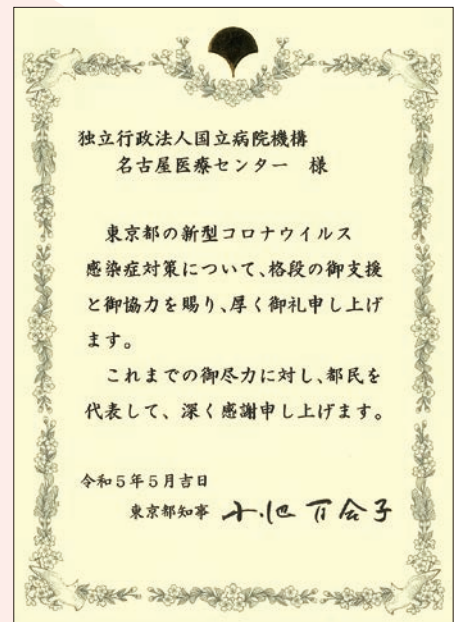 独立行政法人国立病院機構
名古屋医療センター 様
東京都の新型コロナウイルス
感染症対策について、格段の御支援
と御協力を賜り、厚く御礼申し上げ
ます。
これまでの御尽力に対し、都民を
代表して、深く感謝申し上げます。
令和5年5月吉日
東京都知事 小池百合子